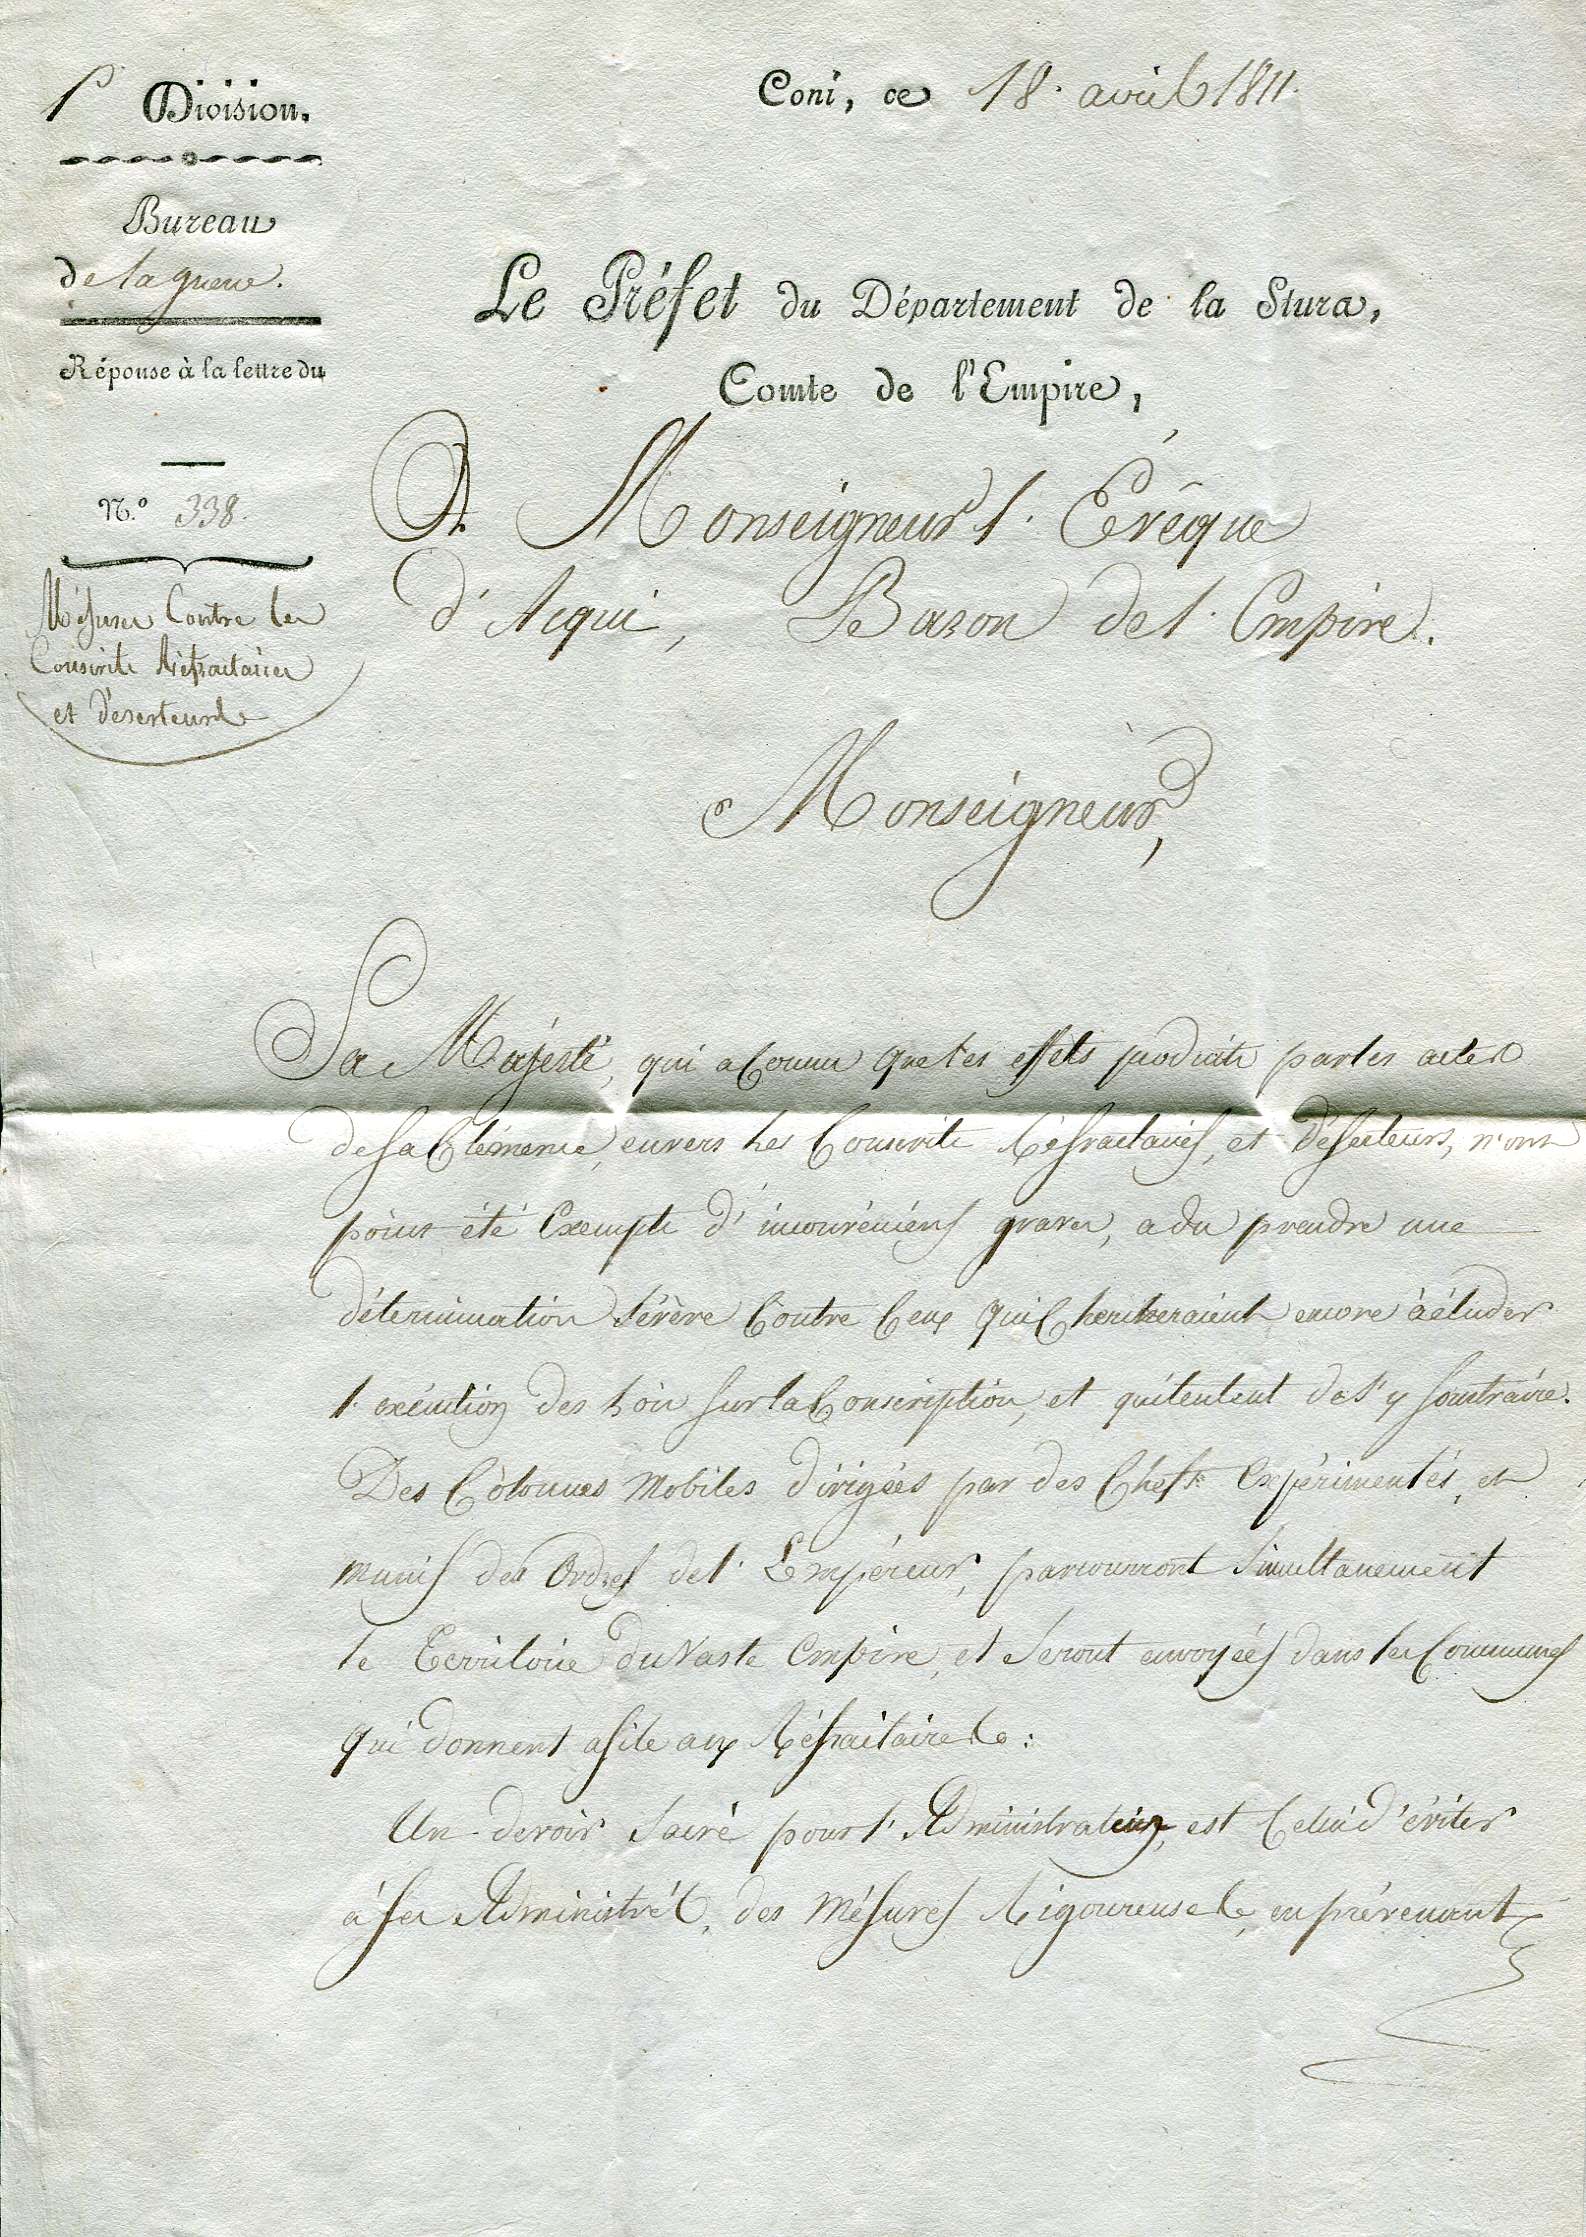 1e Division.
Coni, ce 18. avril 1811.
Bureau
de la guerre.
Réponse à la lettre du
N.º 338.
Mésures Contre les
Conscrits Réfractaires
et déserteurs
Le Préfet du Département de la Stura,
Comte de l'Empire,
A Monseigneur l'Evêque
d'Acqui, Baron de l'Empire.
Monseigneur,
Sa Majesté, qui a Connu que les effets produits par les actes
de sa Clémence, envers les Conscrits Réfractaires, et déserteurs, n'ont
point été Exempts d'inconvéniens graves, a du prendre une
détermination Sévère Contre Ceux qui Chercheraient encore à éluder
l'exécution des Lois sur la Conscription, et qui tentent de s'y soustraire.
Des Colonnes Mobiles dirigées par des Chefs Expérimentés, et
munis des Ordres de l'Empéreur, parcourront Simultanement
le Territoire du Vaste Empire, et Seront envoyées dans les Communes
qui donnent asile aux Réfractaires:
Un devoir Sacré pour l'Administration, est Celui d'éviter
à ses Administrés, des Mésures Rigoureuses, en prévenant